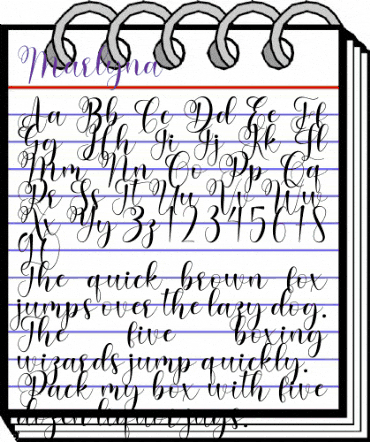 Marlyna
Aa Bb Cc Dd Ee Ff
Gg Hh Ii Jj Kk Ll
Mm Nn Oo Pp Qq
Rr Ss Tt Uu Vv Ww
Xx Yy Zz 1 2 3 4 5 6 7 8
9 0
The quick brown fox
jumps over the lazy dog.
The five boxing
wizards jump quickly.
Pack my box with five
dozen liquor jugs.